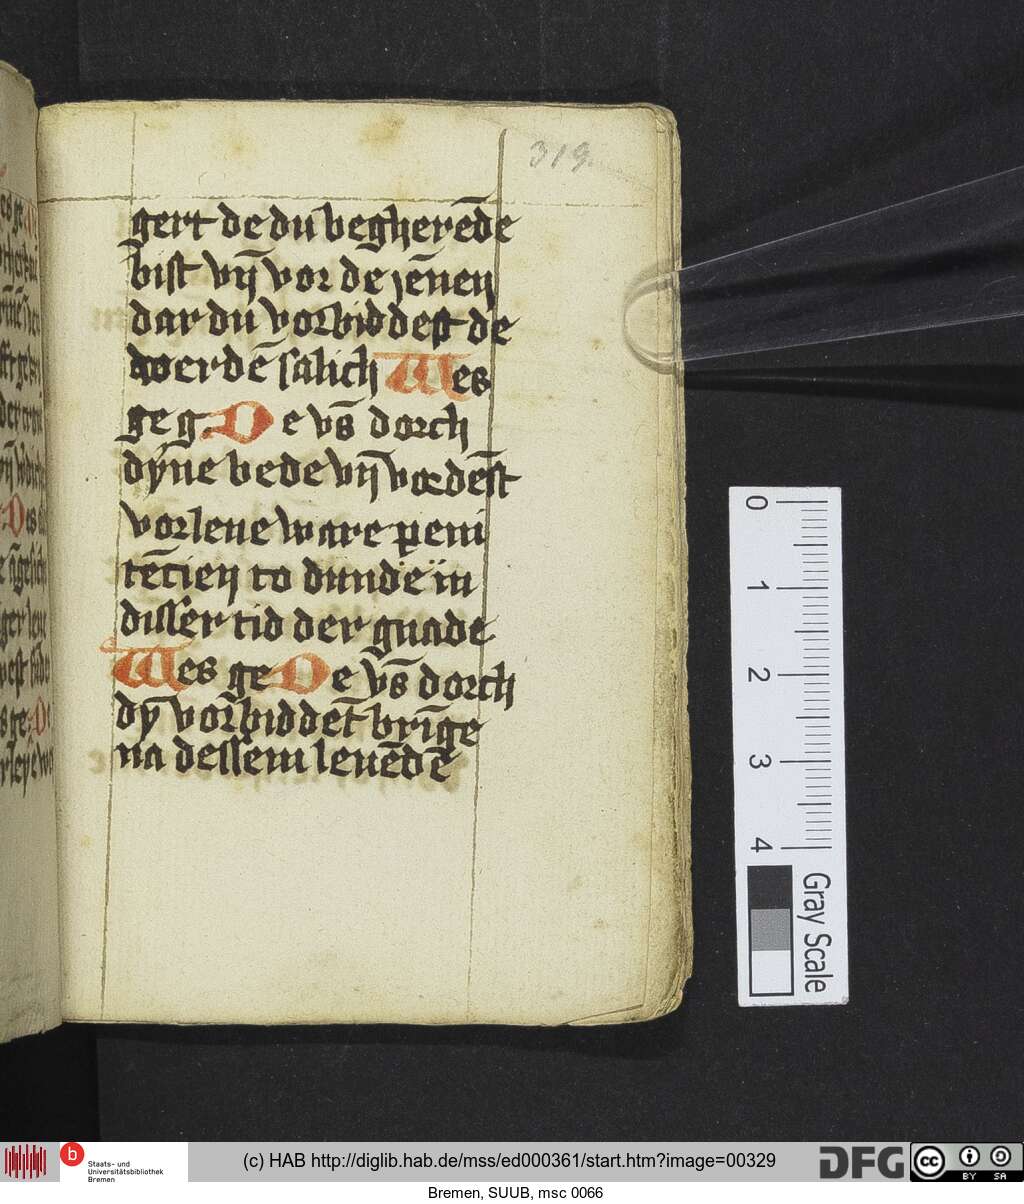 319.
gert de du begherēde
bist vn̄ vor de jēnen
dar du vorbiddest de
werdē salich Wes
ge g. De vs̄ dorch
dyne bede vn̄ vordēst
vorlene ware peni
tēcien to dunde in
disser tid der gnade
Wes ge De vs̄ dorch
dȳ vorbiddēt brīge
na dessem leuēdē
0
1
2
3
4
Gray Scale
b Staats- und
Universitätsbibliothek
Bremen
(c) HAB http://diglib.hab.de/mss/ed000361/start.htm?image=00329
DFG
cc BY SA
Bremen, SUUB, msc 0066